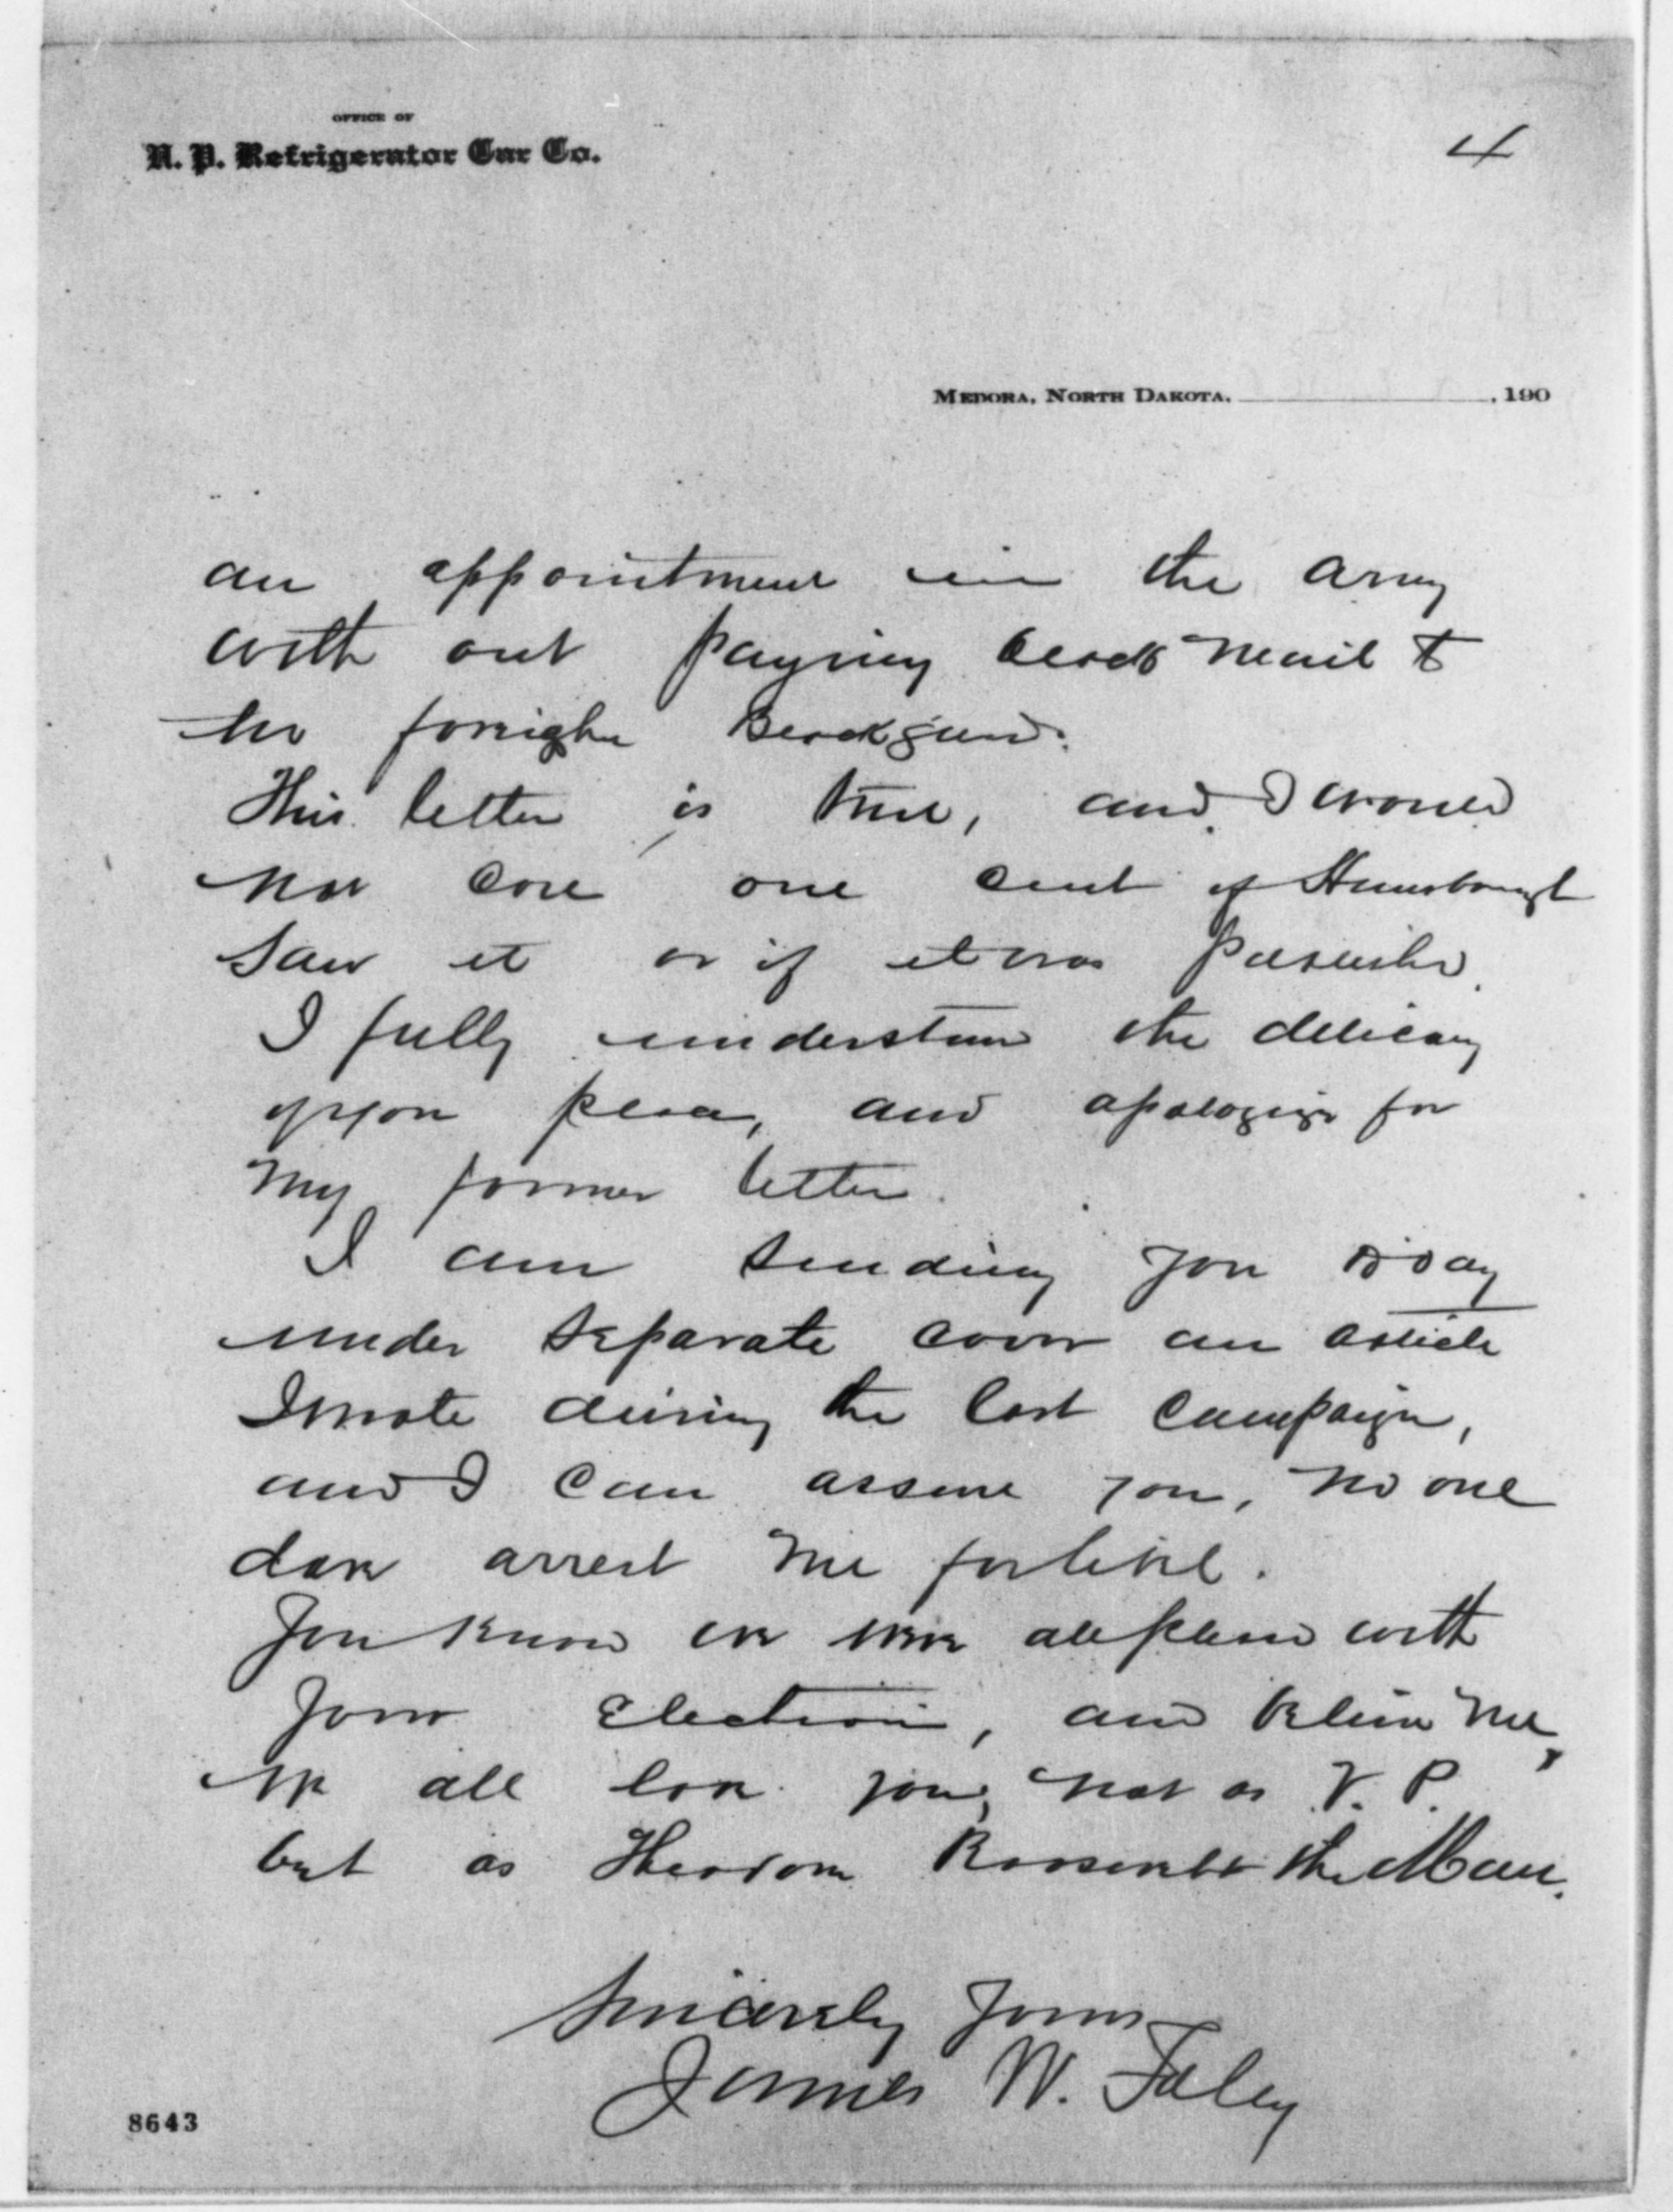 OFFICE OF
N. P. Refrigerator Car Co.
4
MEDORA, NORTH DAKOTA, , 190
an appointment in the army
with out paying black mail to
no foreighn Blackguard.
This letter is true, and I would
not care one cent if Hansbrough
saw it or if it was published.
I fully understand the delicacy
of your place, and apologize for
my former letter.
I am sending you today
under separate cover an article
I wrote during the last campaign,
and I can assure you, no one
dare arrest me for libel.
You know we were all pleased with
your election, and believe me,
we all love you, not as V. P.
but as Theodore Roosevelt the Man.
Sincerely Yours
James W. Foley
8643